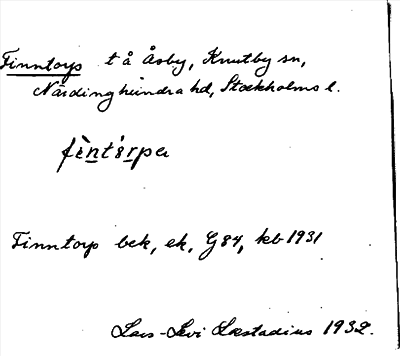 Finntorp t å Åsby, Knutby sn,
Närdinghundra hd, Stockholms l.
fìntórpa
Finntorp bek, ek, G 84, kb 1931
Lars-Levi Læstadius 1932.